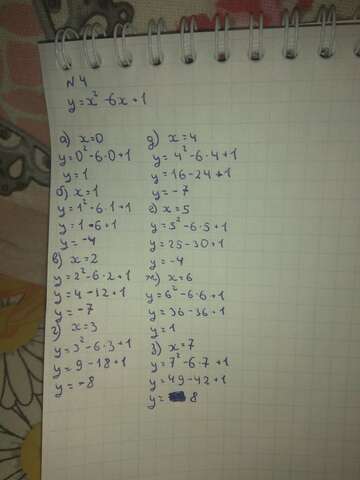 N4
y=x²-6x+1
а) x=0
y=0²-6·0+1
y=1
б) x=1
y=1²-6·1+1
y=1-6+1
y=-4
в) x=2
y=2²-6·2+1
y=4-12+1
y=-7
г) x=3
y=3²-6·3+1
y=9-18+1
y=-8
д) x=4
y=4²-6·4+1
y=16-24+1
y=-7
е) x=5
y=5²-6·5+1
y=25-30+1
y=-4
ж) x=6
y=6²-6·6+1
y=36-36+1
y=1
з) x=7
y=7²-6·7+1
y=49-42+1
y= 8